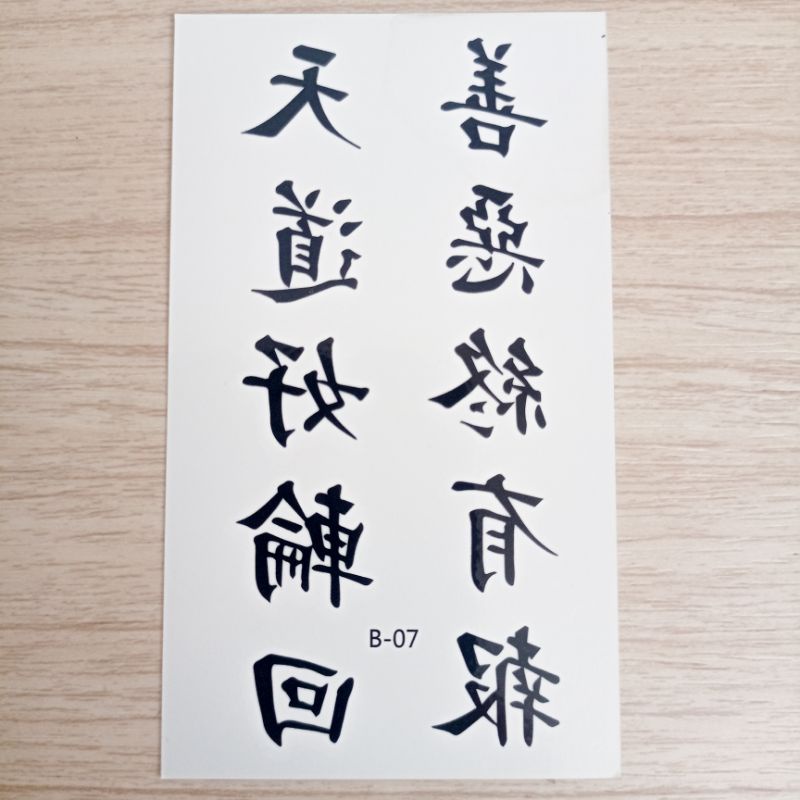 天道好輪回
善惡終有報
B-07